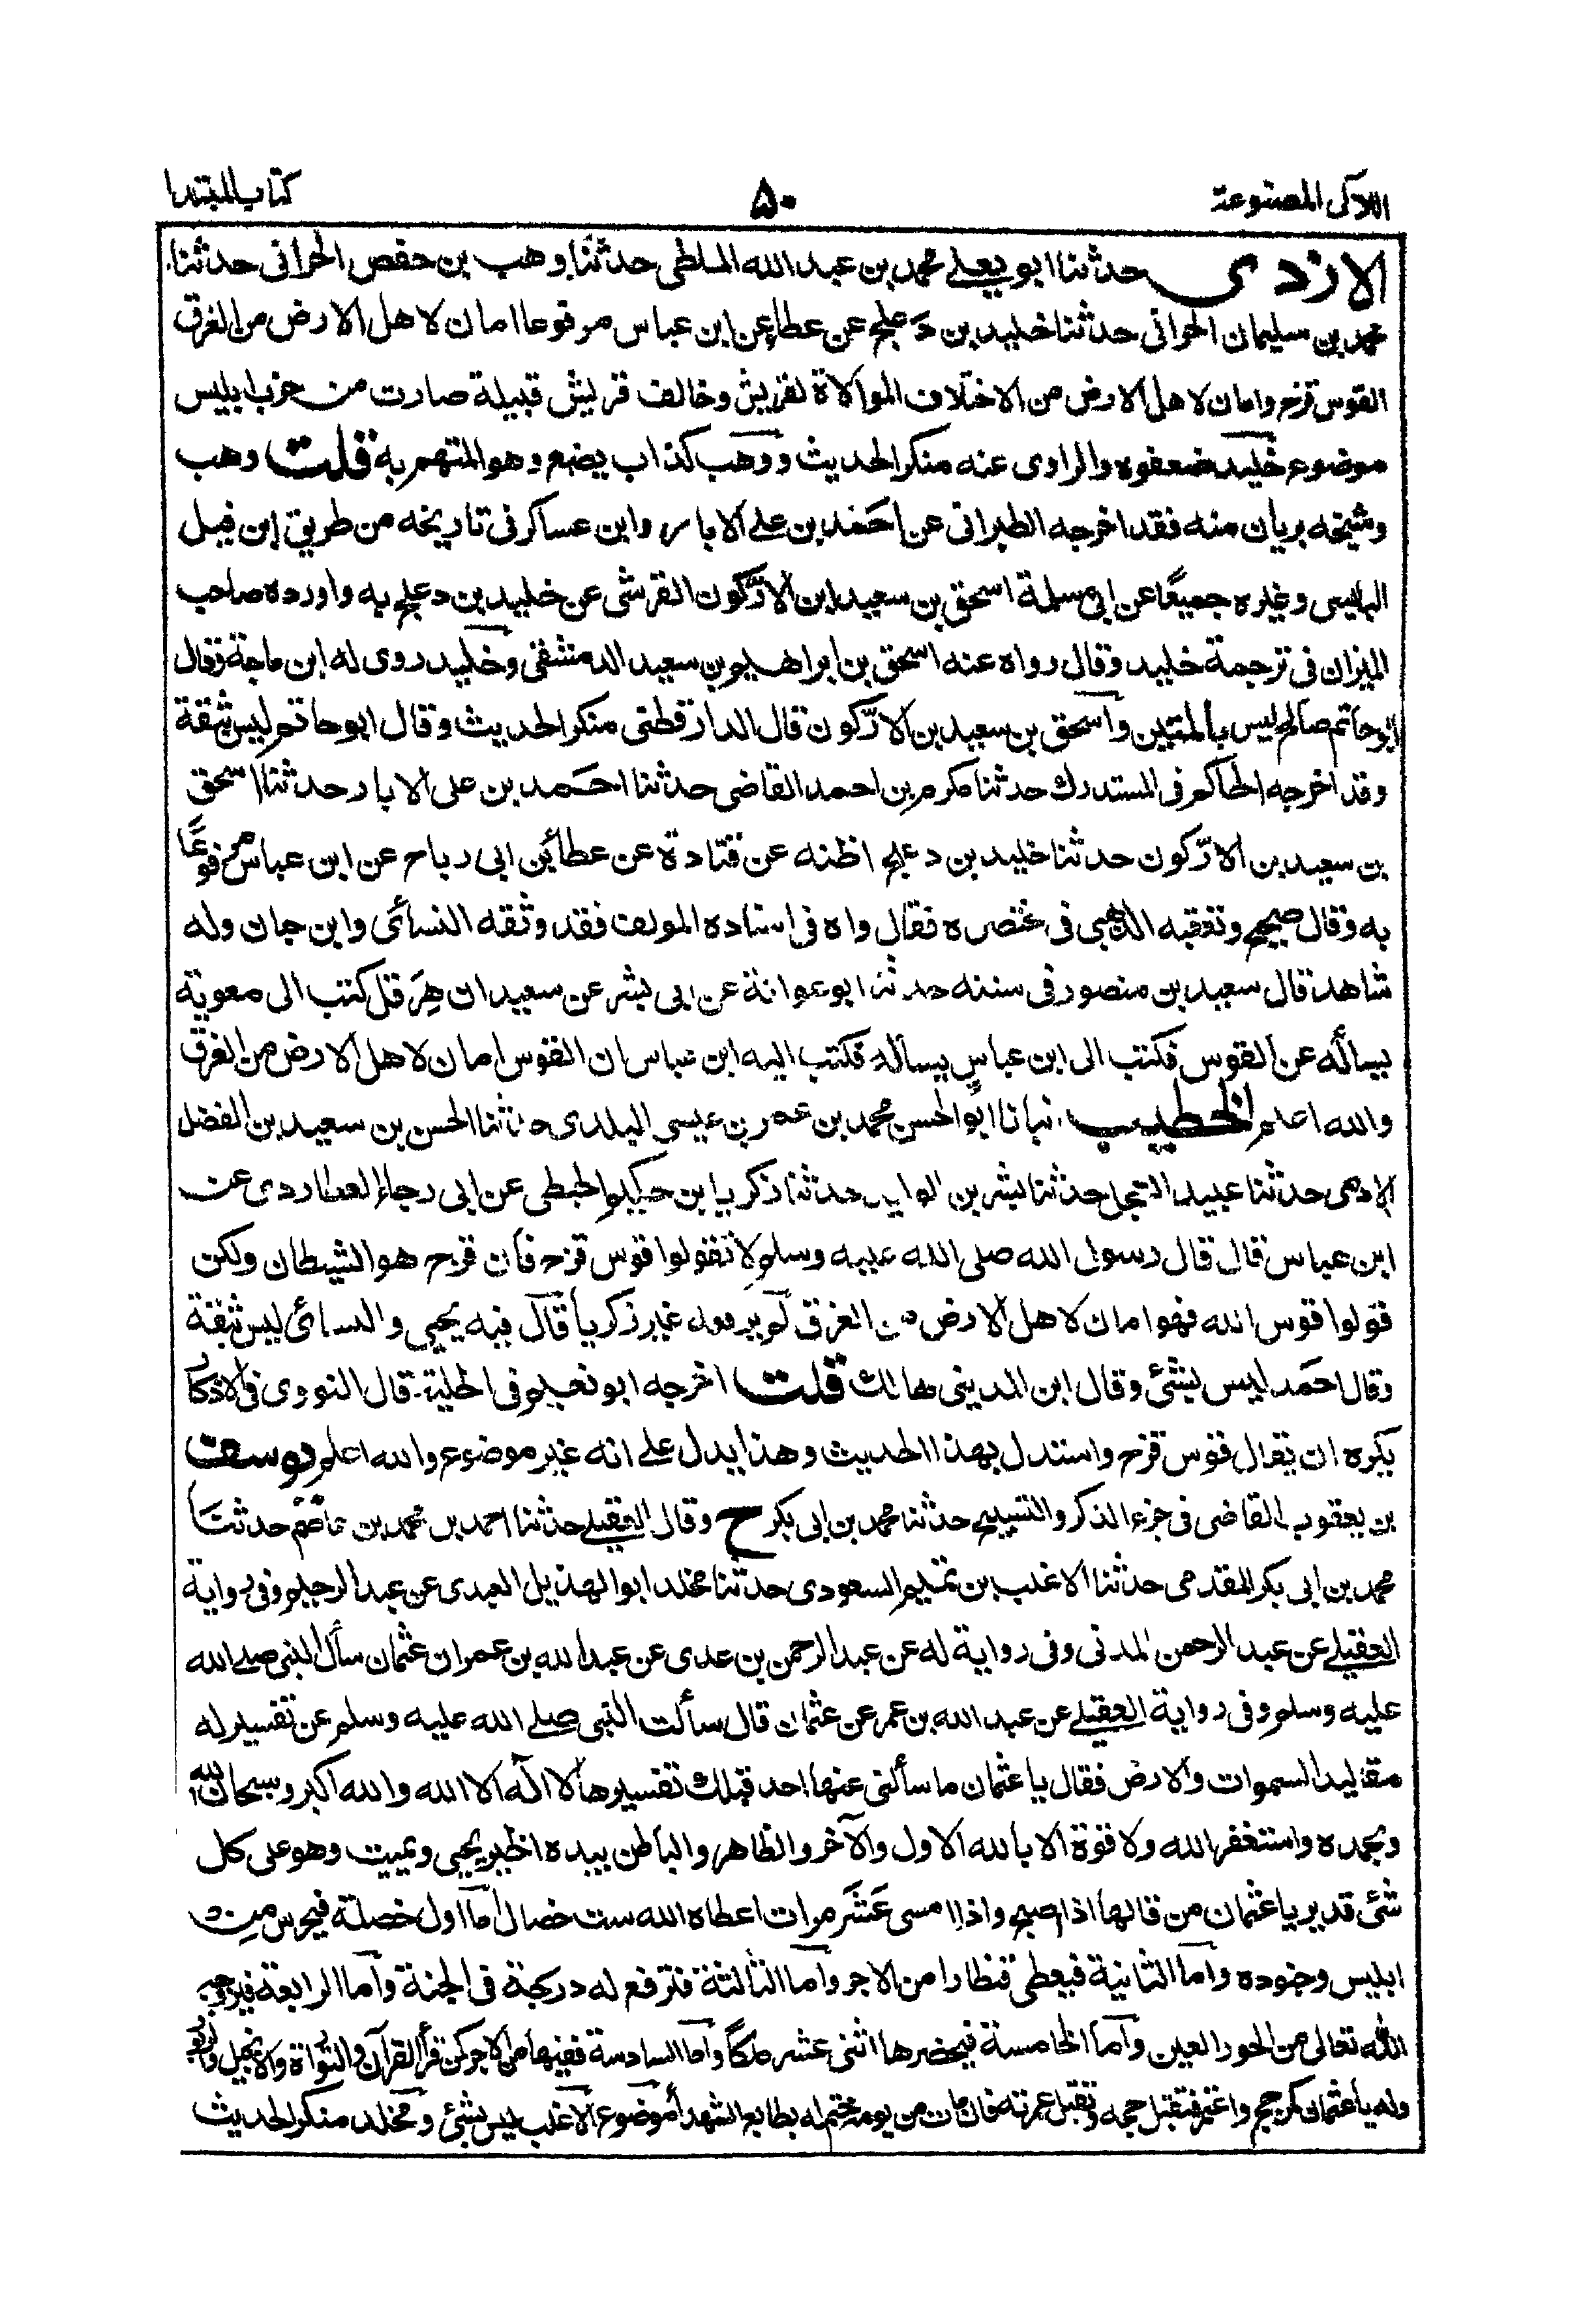 اللآلى المصنوعة
۵۰
كتاب المبتدا
الازدى حدثنا ابو يعلے محمد بن عبد الله الملطى حدثنا وهب بن حفص الحرانى حدثنا
محمد بن سليمان الحرانى حدثنا خليد بن دَعلج عن عطا عن ابن عباس مرفوعا امان لاهل الارض من الغرق
القوس قزح وامان لاهل الارض من الاختلاف الموالاة لقريش وخالف قريش قبيلة صارت من حزب ابليس
موضوع خليد ضعفوه والراوى عنه منكر الحديث ووهب كذاب يضع وهو المتهم به قلت وهب
وشيخه بريان منه فقد اخرجه الطبرانى عن احمد بن على الابار وابن عساكر فى تاريخه من طريق ابن فيل
البالسى وغيره جميعًا عن ابى مسلمة اسحق بن سعيد ابن الاركون القرشى عن خليد بن دعلج به واورده صاحب
الميزان فى ترجمة خليد وقال رواه عنه اسحق بن ابراهيم بن سعيد الدمشقى وخليد روى له ابن ماجة وقال
ابو حاتم صالح ليس بالمتين واسحق بن سعيد بن الاركون قال الدارقطنى منكر الحديث وقال ابو حاتم ليس بثقة
وقد اخرجه الحاكم فى المستدرك حدثنا مكرم بن احمد القاضى حدثنا احمد بن على الابار حدثنا اسحق
بن سعيد بن الاركون حدثنا خليد بن دعلج اظنه عن قتادة عن عطاء بن ابى رباح عن ابن عباس مرفوعًا
به وقال صحيح وتعقبه الذهبى فى مختصره فقال واه فى اسناده المولف فقد وثقه النسائى وابن حبان وله
شاهد قال سعيد بن منصور فى سننه حدثنا ابو عوانة عن ابى بشر عن سعيد ان هِرَقل كتب الى معوية
يسأله عن القوس فكتب الى ابن عباس يسأله فكتب اليه ابن عباس ان القوس امان لاهل الارض من الغرق
والله اعلم الخطيب انبانا ابو الحسن محمد بن عمر بن عيسى البلدى حدثنا الحسن بن سعيد بن الفضل
الادمى حدثنا عبيد العجل حدثنا بشر بن الوليد حدثنا زكريا بن حكيم الحبطى عن ابى رجاء العطاردى عن
ابن عباس قال قال رسول الله صلى الله عليه وسلم لا تقولوا قوس قزح فأن قزح هو الشيطان ولكن
قولوا قوس الله فهو امان لاهل الارض من الغرق لم يرفعه غير زكريا قال فيه يحيى والنسائى ليس بثقة
وقال احمد ليس بشئ وقال ابن المدينى هالك قلت اخرجه ابو نعيم فى الحلية قال النووى فى الاذكار
يكره ان يقال قوس قزح واستدل بهذا الحديث وهذا يدل على انه غير موضوع والله اعلم يوسف
بن يعقوب القاضى فى جزء الذكر والتسبيح حدثنا محمد بن ابى بكر ح وقال العقيلے حدثنا احمد بن محمد بن عاصم حدثنا
محمد بن ابى بكر المقدمى حدثنا الاغلب بن تميم السعودى حدثنا مخلد ابو الهذيل العبدى عن عبد الرحيم وفى رواية
العقيلے عن عبد الرحمن المدنى وفى رواية له عن عبد الرحمن بن عدى عن عبد الله بن عمر ان عثمان سأل النبى صلے الله
عليه وسلم وفى رواية العقيلے عن عبد الله بن عمر عن عثمان قال سألت النبى صلے الله عليه وسلم عن تفسير له
مقاليد السموات والارض فقال يا عثمان ما سألنى عنها احد قبلك تفسيرها لا اله الا الله والله اكبر وسبحان الله
وبحمده واستغفر الله ولا قوة الا بالله الاول والآخر والظاهر والباطن بيده الخير يحيى ويميت وهو على كل
شئ قدير يا عثمان من قالها اذا اصبح واذا امسى عَشَر مرات اعطاه الله ست خصال اما اول خصلة فيحرس من
ابليس وجنوده واما الثانية فيعطى قنطارا من الاجر واما الثالثة فترفع له درجة فى الجنة واما الرابعة فيزوجه
الله تعالى من الحور العين واما الخامسة فيحضرها اثنى عشر ملكًا واما السادسة ففيها من الاجر كمن قرأ القرآن والتوراة والانجيل والزبور
وله يا عثمان كمن حج واعتمر فتقبل حجه وتقبل عمرته فان مات من يومه ختم له بطابع الشهدا موضوع الاغلب ليس بشئ ومخلد منكر الحديث